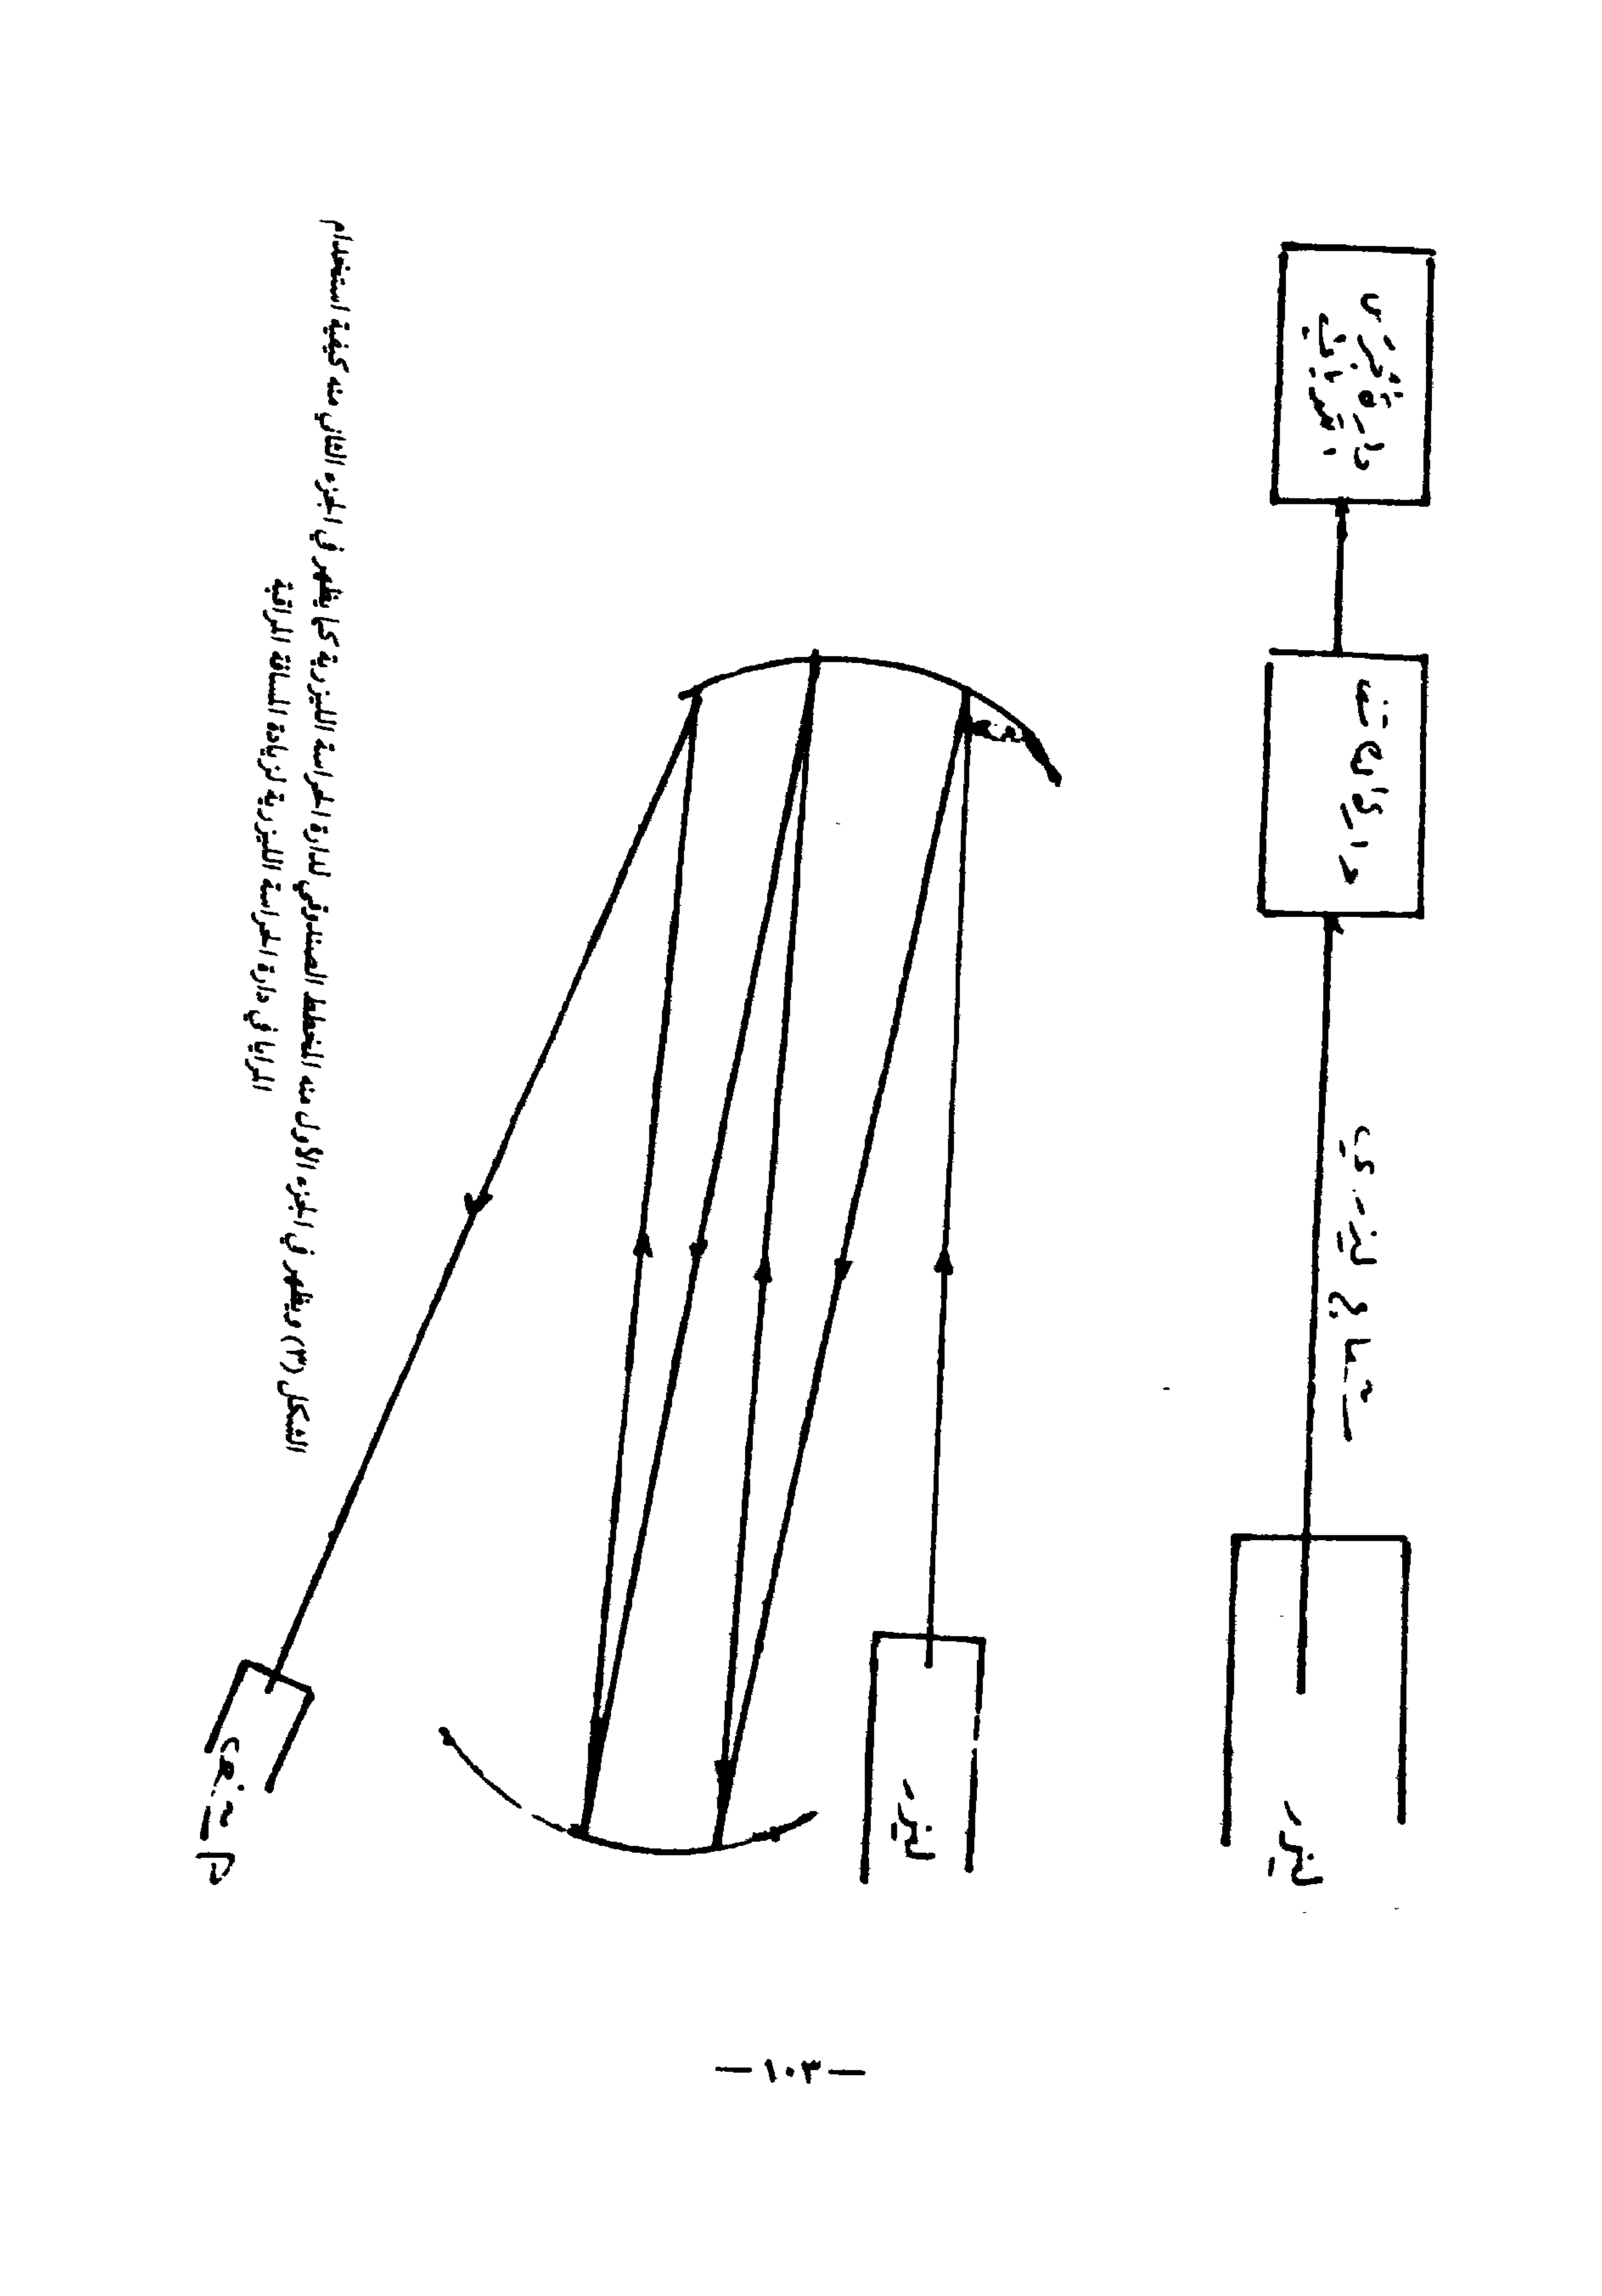 ليزر
شعاع ليزري
كاشف
دارة قدح
ليزر
كاشف
الشكل (٣) ويظهر في الجزء الأول منه المخطط الصندوقي لدارة الحراسة الليزرية كما يظهر في الجزء الثاني منه كيفية استخدام
المرايا في دارة الحراسة الليزرية لزيادة المسافة المراقبة
—١٠٣—